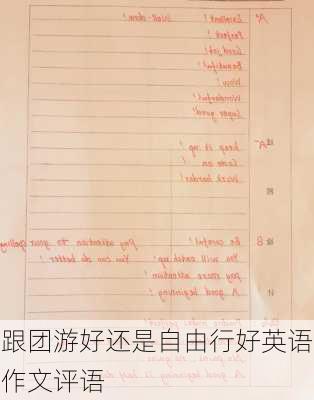 A⁺ Excellent! Well-done!
Perfect!
Good job!
Beautiful!
Wow!
Wonderful!
Super good!
A⁻ keep it up!
Come on !
Work harder!
B Be careful! Pay attention to your spelling
You will catch up! You can do better!
pay more attention
A good beginning!
跟团游好还是自由行好英语
作文评语